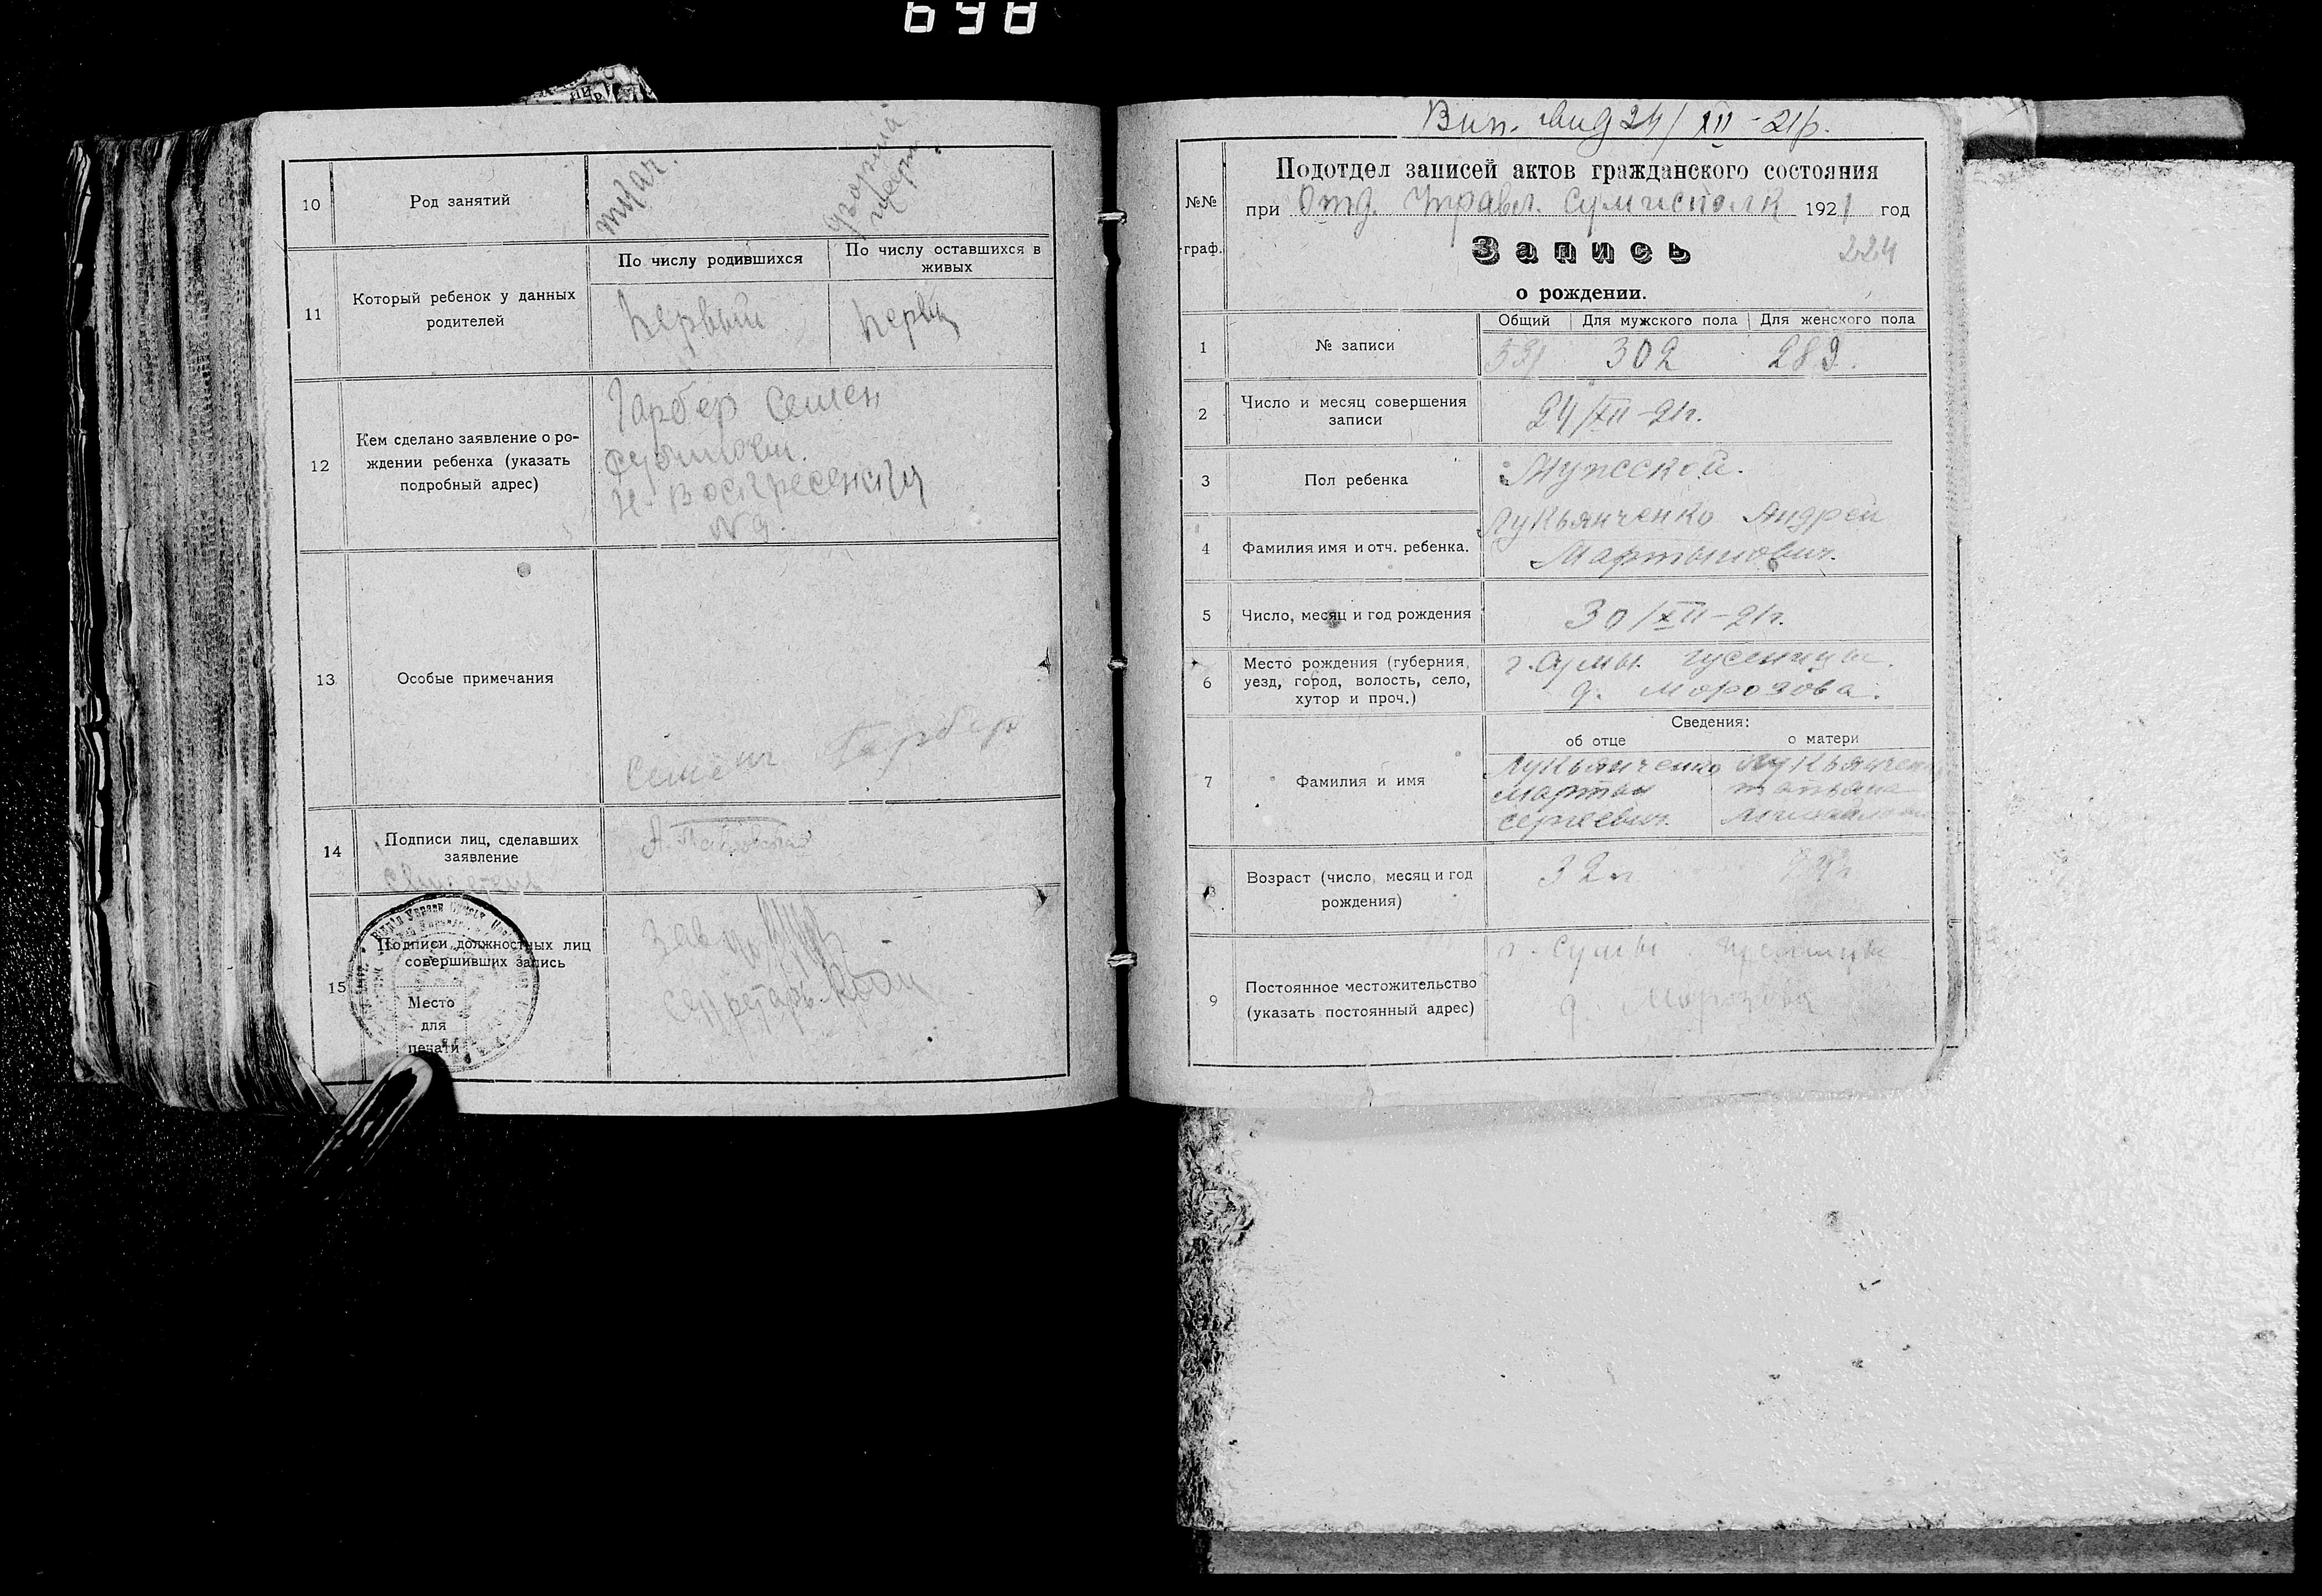 698
10
Род занятий
11
Который ребенок у данных
родителей
По числу родившихся
По числу оставшихся в
живых
Первый
Первы
12
Кем сделано заявление о ро-
ждении ребенка (указать
подробный адрес)
Гарбер Семен
Н-Воскресенск
N 9.
13
Особые примечания
Гарбер
14
Подписи лиц, сделавших
заявление
А.
15
Подписи должностных лиц
совершивших запись
Место
для
печати
Зав
Секретарь
Вип. 24/XII-21р.
№№
граф.
Подотдел записей актов гражданского состояния
при Отд. Управл. Сумисполк 1921 год
Запись
224
о рождении.
1
№ записи
Общий
Для мужского пола
Для женского пола
302
289.
2
Число и месяц совершения
записи
24/XII-21г.
3
Пол ребенка
Мужской.
4
Фамилия имя и отч. ребенка.
Лукьянченко Андрей
Мартынович.
5
Число, месяц и год рождения
30/XII-21г.
6
Место рождения (губерния,
уезд, город, волость, село,
хутор и проч.)
г. Сумы.
д. Морозова.
7
Фамилия и имя
Сведения:
об отце
о матери
Лукьянченко
Мартын
Сергеевич.
Татьяна
8
Возраст (число, месяц и год
рождения)
32 г.
9
Постоянное местожительство
(указать постоянный адрес)
г. Сумы
д. Морозова